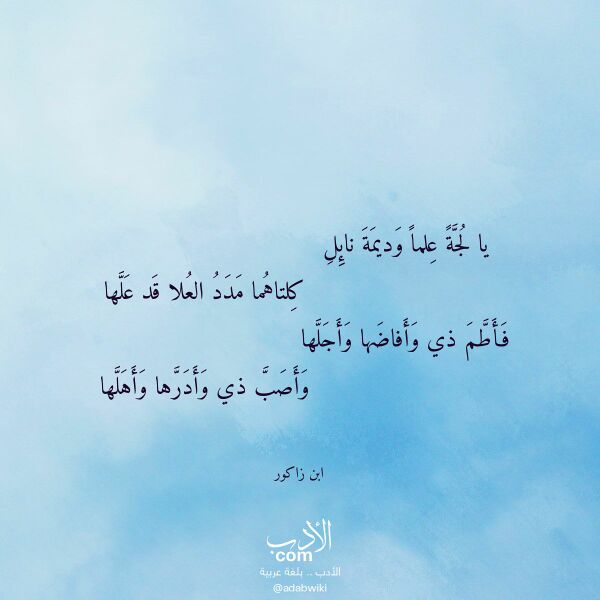 يا لُجَّةً عِلماً وَديمَةَ نائِلِ
كِلتاهُما مَدَدُ العُلا قَد عَلَّها
فَأَطَّمَ ذي وَأَفاضَها وَأَجَلَّها
وَأَصَبَّ ذي وَأَدَرَّها وَأَهَلَّها
ابن زاكور
الأدب
com
الأدب .. بلغة عربية
@adabwiki